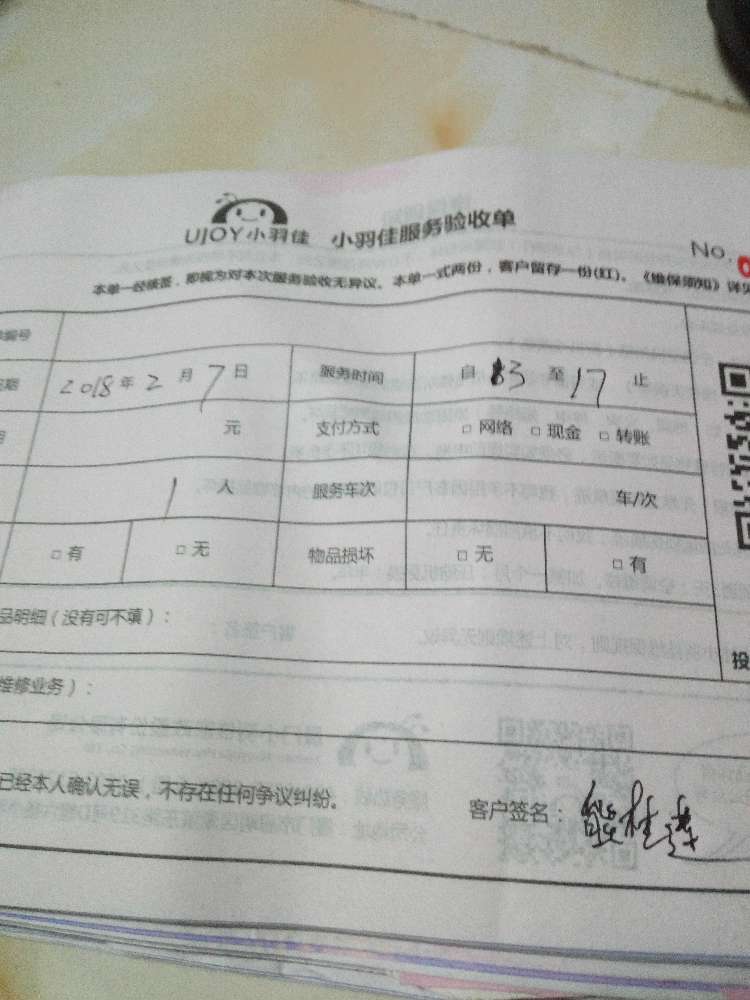 UJOY小羽佳 小羽佳服务验收单
No.
本单一经核签，即视为对本次服务验收无异议。本单一式两份，客户留存一份(红)。《维保须知》详见
编号
期 2018年2月7日 服务时间 自 13 至 17 止
元 支付方式 □网络 □现金 □转账
1 人 服务车次 车/次
□有 □无 物品损坏 □无 □有
品明细（没有可不填）：
投
维修业务）：
已经本人确认无误，不存在任何争议纠纷。 客户签名：熊桂莲